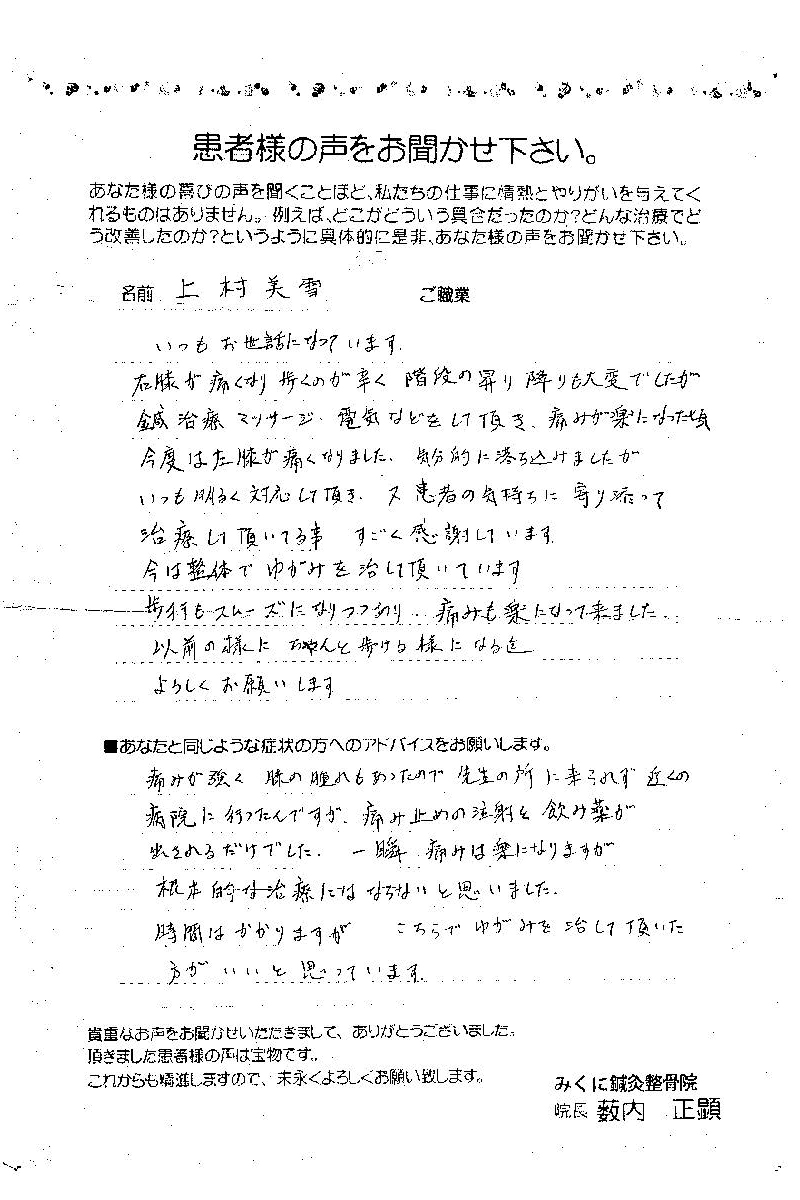 患者様の声をお聞かせ下さい。
あなた様の喜びの声を聞くことほど、私たちの仕事に情熱とやりがいを与えてく
れるものはありません。例えば、どこがどういう具合だったのか?どんな治療でど
う改善したのか?というように具体的に是非、あなた様の声をお聞かせ下さい。
名前 上村美雪 ご職業
いつもお世話になっています.
右膝が痛くなり歩くのが辛く 階段の昇り降りも大変でしたが
鍼治療 マッサージ. 電気などをして頂き、痛みが楽になった頃
今度は左膝が痛くなりました. 気分的に落ち込みましたが
いつも明るく対応して頂き. 又患者の気持ちに寄り添って
治療して頂いてる事 すごく感謝しています.
今は整体で ゆがみを治して頂いています
歩行もスムーズになりつつあり. 痛みも楽になって来ました.
以前の様に ちゃんと歩ける様になる迄
よろしくお願いします
■あなたと同じような症状の方へのアドバイスをお願いします。
痛みが強く 膝の腫れもあったので 先生の所に来られず近くの
病院に行ったんですが. 痛み止めの注射と飲み薬が
出されるだけでした. 一瞬 痛みは楽になりますが
根本的な治療にはならないと思いました.
時間はかかりますが こちらでゆがみを治して頂いた
方がいいと思っています.
貴重なお声をお聞かせいただきまして、ありがとうございました。
頂きました患者様の声は宝物です。
これからも精進しますので、末永くよろしくお願い致します。
みくに鍼灸整骨院
院長 薮内 正顕